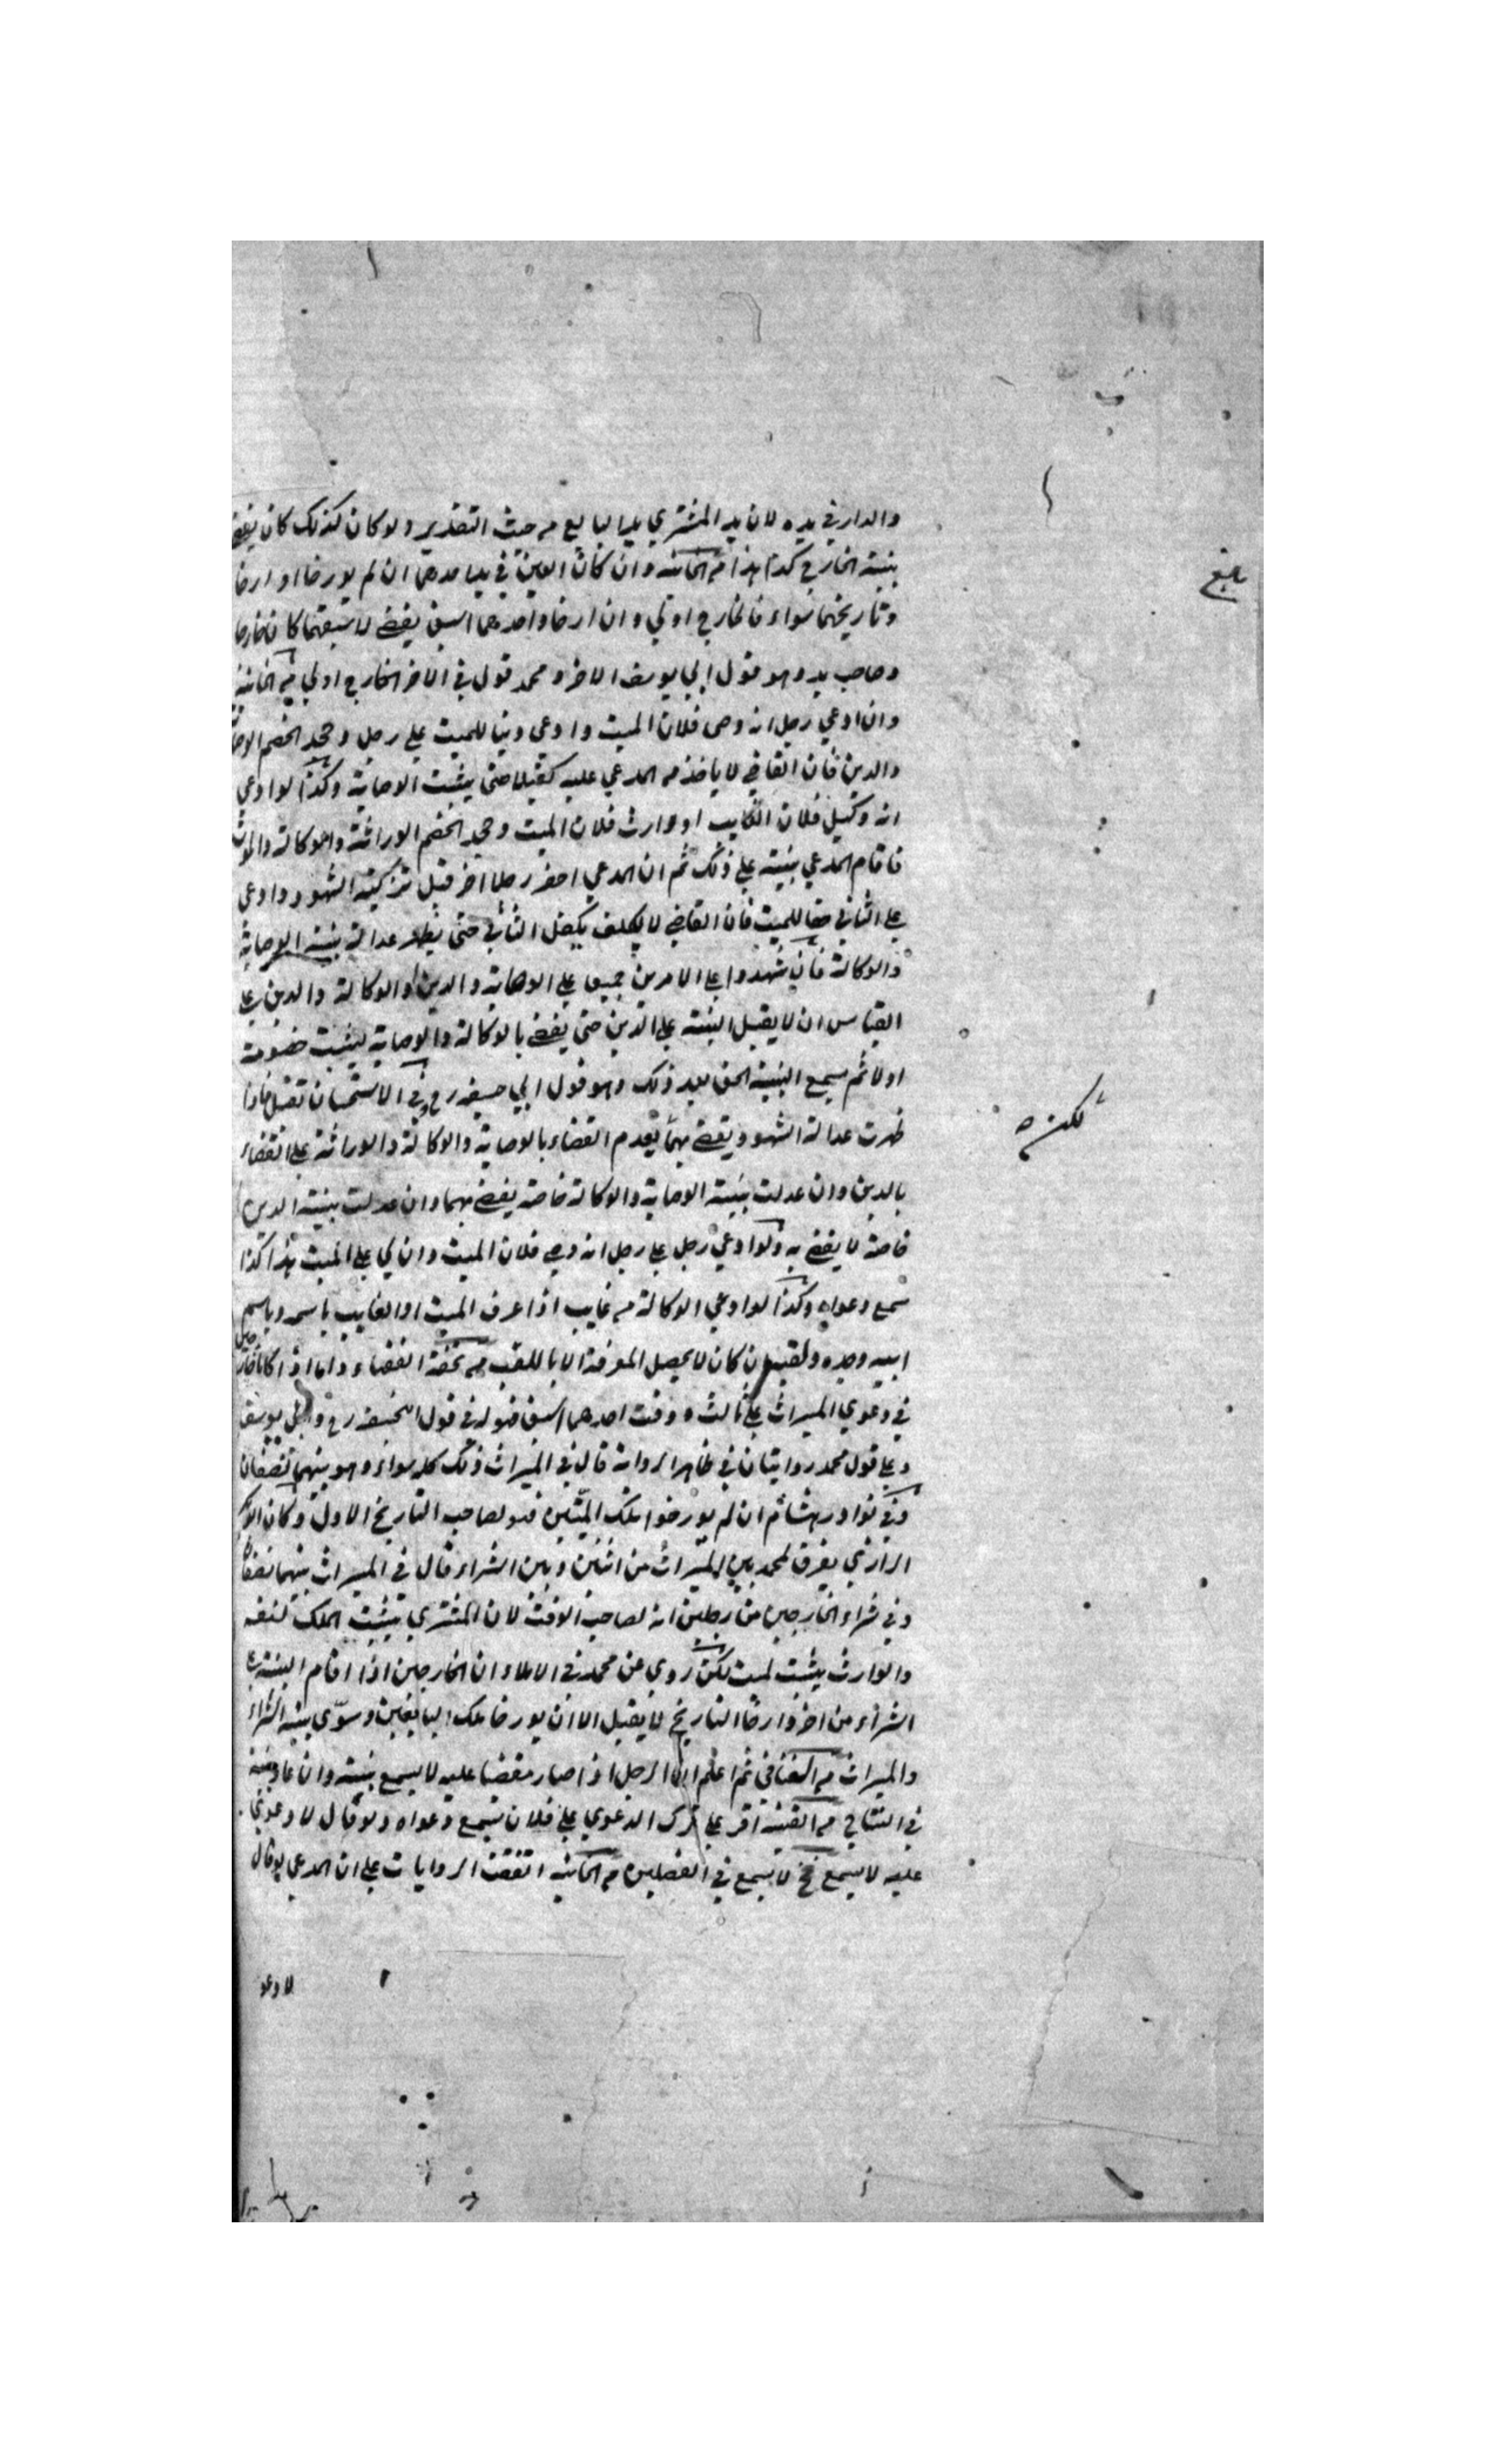 والدار في يده لان يد المشتري يد البايع من حيث التقدير ولو كان كذلك كان يقضى
ببينة الخارج كذا هذا من الخانية وان كان العين في يد احدهما ان لم يورخا او ارخا
وتاريخهما سواء فالخارج اولي وان ارخا واحدهما اسبق يقضي لاسبقهما كان خارجا
وصاحب يد وهو قول ابي يوسف الاخر و محمد قول في الاخر الخارج اولي من الخانية
وان ادعي رجل انه وصي فلان الميت وادعي دينا للميت علي رجل وجحد الخصم
والدين فان القاضي لا ياخذ من المدعي عليه كفيلا حتى يثبت الوصاية وكذا لو ادعي
انه وكيل فلان الغايب او وارث فلان الميت وجحد الخصم الوراثة والوكالة والموت
فاقام المدعي بينة علي ذلك ثم ان المدعي احضر رجلا اخر قبل تزكية الشهود وادعي
علي الثاني حقا للميت فان القاضي لا يكلف بكفل الثاني حتى يظهر عدالة بينة الوصاية
والوكالة فان شهدوا علي الامرين جميعا علي الوصاية والدين او الوكالة والدين علي
القياس ان لا يقبل البينة علي الدين حتى يقضي بالوكالة والوصاية ليثبت خصومة
اولا ثم يسمع البينة الحق بعد ذلك وهو قول ابي حنيفة رح وفي الاستحسان تقبل فاذا
ظهرت عدالة الشهود يقضي بهما يقدم القضاء بالوصاية والوكالة والوراثة علي القضاء
بالدين وان عدلت بينة الوصاية والوكالة خاصة يقضي بهما وان عدلت بينة الدين
خاصة لا يقضي به ولو ادعي رجل علي رجل انه وصي فلان الميت وان لي علي الميت هذا كذا
سمع دعواه وكذا لو ادعي الوكالة من غايب اذا عرف الميت او الغايب باسمه وباسم
ابيه وجده ولقبه ان كان لا يحصل المعرفة الا باللقب من تحفة الفقهاء واما اذا كانا خارجين
في دعوي الميراث علي ثالث و وقت احدهما اسبق فهو له في قول ابي حنيفة رح وابي يوسف
وعلي قول محمد روايتان في ظاهر الرواية قال في الميراث ذلك كله سواء وهو بينهما نصفان
وفي نوادر هشام ان لم يورخوا ملك الميتين فهو لصاحب التاريخ الاول وكان ابو بكر
الرازي يفرق لمحمد بين الميراث من اثنين وبين الشراء قال في الميراث بينهما نصفان
وفي شراء الخارجين من رجلين انه لصاحب الوقت لان المشتري يثبت الملك لنفسه
والوارث يثبت لميت لكن روي عن محمد في الاملاء ان الخارجين اذا اقام البينة علي
الشراء من اخر وارخا التاريخ لا يقبل الا ان يورخا ملك البايعين وسوّي بين الشراء
والميراث من ثم اعلم ان الرجل اذا صار مقضيا عليه لا يسمع بينته وان
في النتاج من القنية اقر علي ترك الدعوي علي فلان تسمع دعواه ولو قال لا دعوي
عليه لا يسمع لا يسمع في الفصلين من الخانية اتفقت الروايات علي ان المدعي لو قال
لا دعو
بلغ
لكن